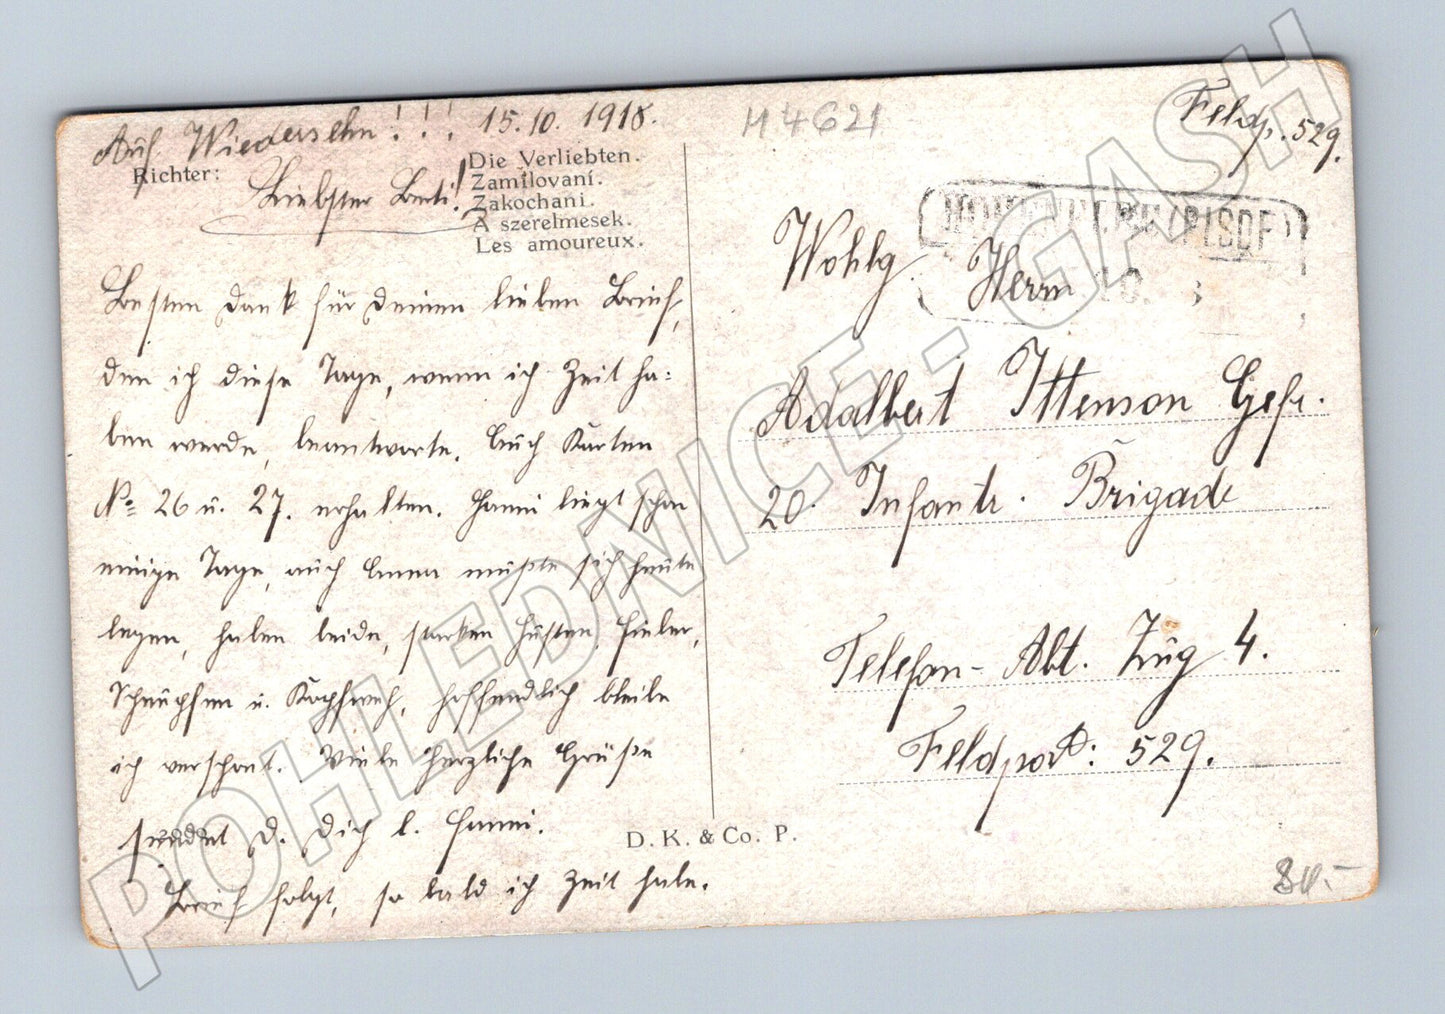 Auf Wiedersehn!!! 15.10.1918.
Richter:
Die Verliebten.
Zamilovaní.
Zakochani.
A szerelmesek.
Les amoureux.
Liebster Berti!
Besten Dank für Deinen lieben Brief,
den ich diese Tage, wenn ich Zeit ha-
ben werde, beantworte. Auch Karten
No 26 u. 27. erhalten. Hanni liegt schon
einige Tage, auch Emma mußte sich heute
legen, haben beide, starken Husten, Fieber,
Schnupfen u. Kopfweh, hoffendlich bleibe
ich verschont. Viele herzliche Grüße
sendet D. Dich l. Hanni.
Brief folgt, so bald ich Zeit habe.
D. K. & Co. P.
H 4621
Feldp. 529.
Wohlg. Herrn
Adalbert Ittenson Gefr.
20. Infantr. Brigade
Telefon-Abt. Zug 4.
Feldpost: 529.
80.-
POHLEDNICE - GASH